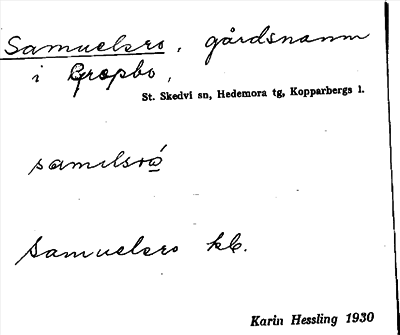 Samuelsro, gårdsnamn
i Gropbo,
St. Skedvi sn, Hedemora tg, Kopparbergs l.
samɩlsro̲´
Samuelsro kb.
Karin Hessling 1930